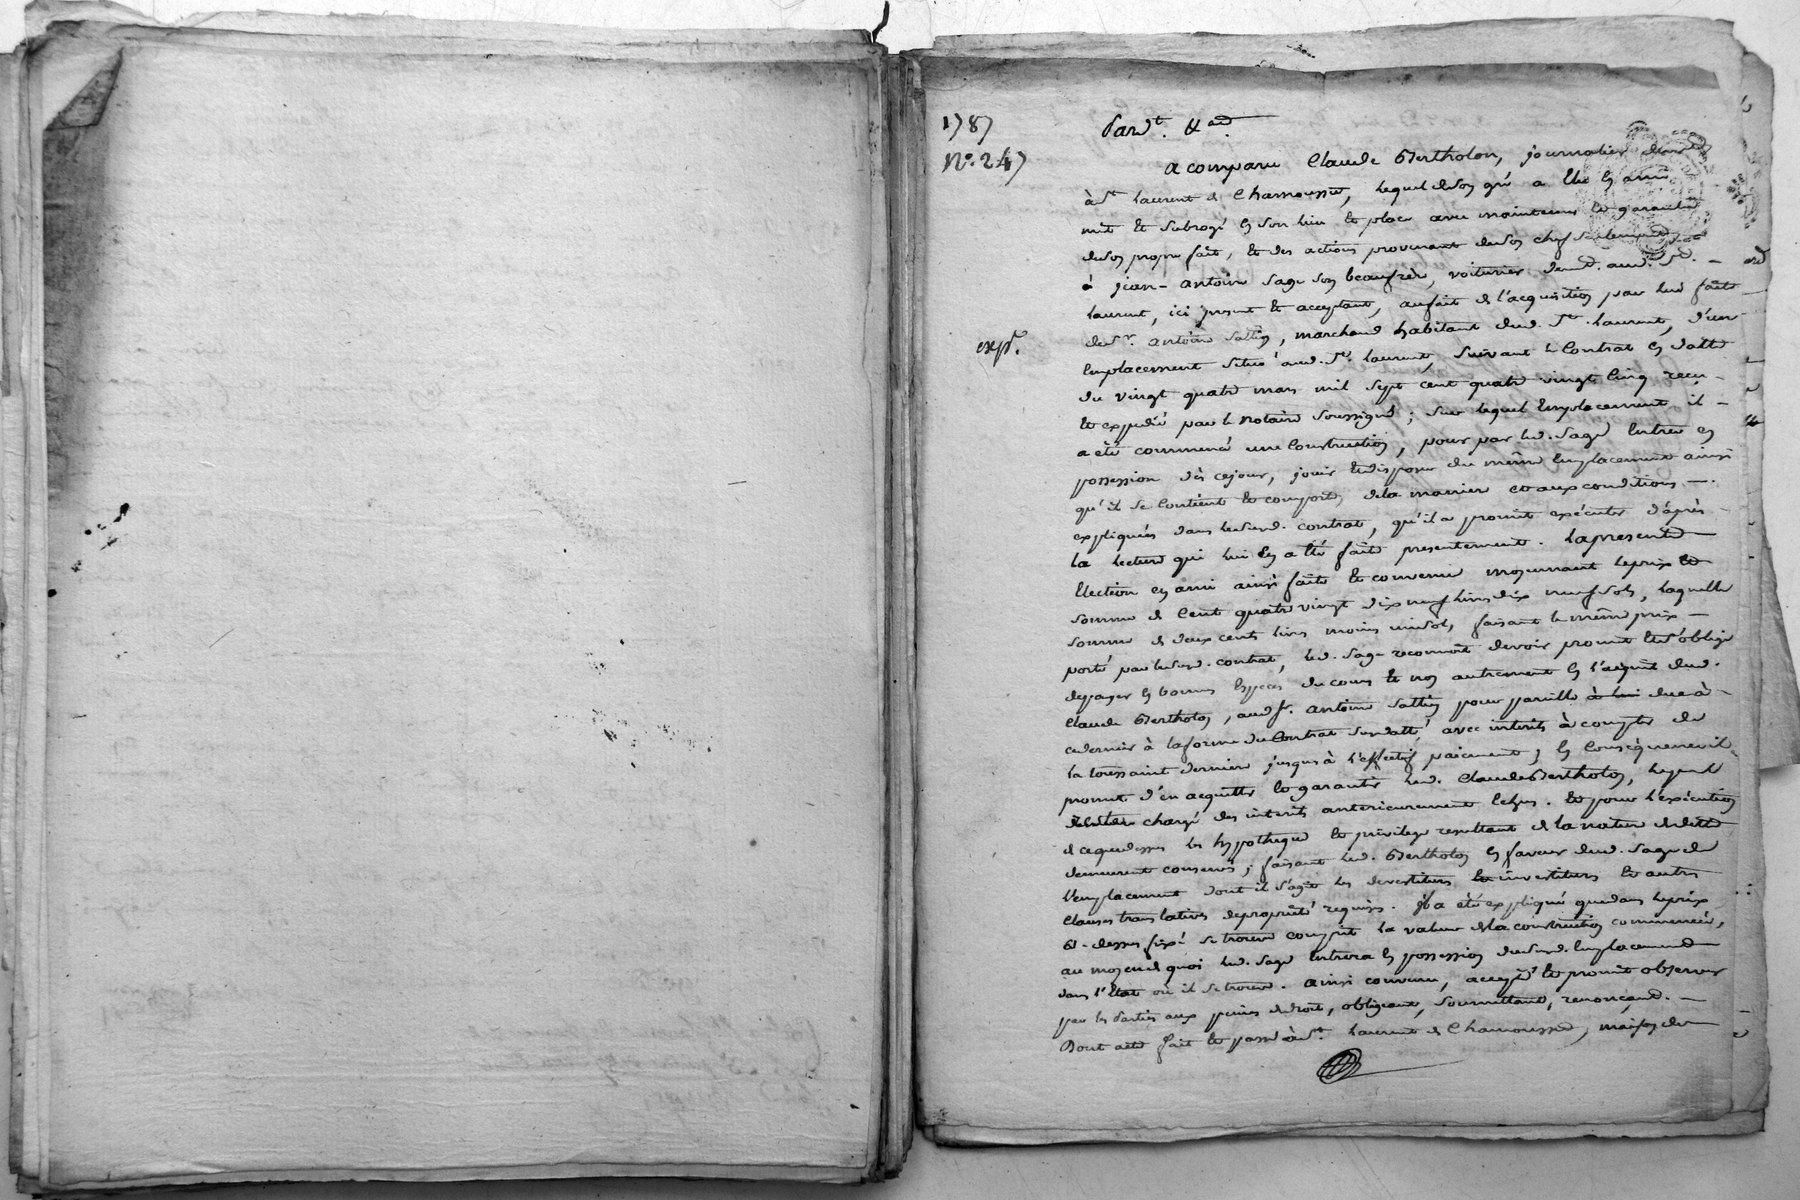 1787
N.° 247
Pard.t &ad.
a comparu Claude Bertholon, journalier demt
à St Laurent de Chamousset, lequel de son gré a élu en ami
mit et subrogé en son lieu et place avec maintenue et garantie
de son propre fait, et des actions provenant de son chef seulement
à jean-antoine Sage son beaufrère, voiturier demt. aud. St. -
Laurent, ici present et acceptant, au fait de l'acquisition par lui faite
expé.
du Sr. antoine Sattin, marchand habitant dud. St. Laurent, d'un
Emplacement situé aud. St. Laurent, suivant le Contrat en datte
du vingt quatre mars mil sept cent quatre vingt cinq recu -
et expédié par le notaire soussigné; sur lequel Emplacement il -
a été commencé une Construction, pour par led. Sage Entrer en
possession dès ce jour, jouir et disposer du même Emplacement ainsi
qu'il se Contient et comporte, de la maniere et aux conditions -.
expliquées dans le susd. contrat, qu'il a promit exécuter d'après -
la lecture qui lui en a été faite presentement. la presente
Election en ami ainsi faite et convenue moyennant le prix et
somme de Cent quatre vingt dix neuf livres dix neuf sols, laquelle
somme de deux cents livres moins un sol, faisant le même prix -
porté par le susd. contrat, led. Sage reconnoit devoir promet et s'oblige
de payer en bonnes Especes du cours et non autrement en l'acquit dud.
Claude Bertholon, aud. Sr. antoine Sattin pour pareille à lui due à -
ce dernier à la forme du Contrat susdatté, avec interêts à compter de
la toussaint derniere jusqu'à l'effectif paiement; en Conséquence il
promet d'en acquitter et garantir led. Claude Bertholon, lequel
chargé des interêts anterieurement échus. et pour l'exécution
de ce que dessus les hypotheque et privilege resultant de la nature de dette
demeurent conservés; faisant led. Bertholon en faveur dud. Sage de
l'emplacement dont il s'agit les devestitures et investitures et autres
Clauses translatives de propriété requises. Il a été expliqué que dans le prix
ci-dessus fixé se trouve compris la valeur de la construction commencée,
au moyen de quoi led. Sage Entrera en possession du susd. Emplacement
dans l'Etat où il se trouve. ainsi convenu, accepté et promit observer
par les Parties aux peines de droit, obligeant, soumettant, renonçant. -
Dont acte fait et passé à St. Laurent de Chamousset, maison de